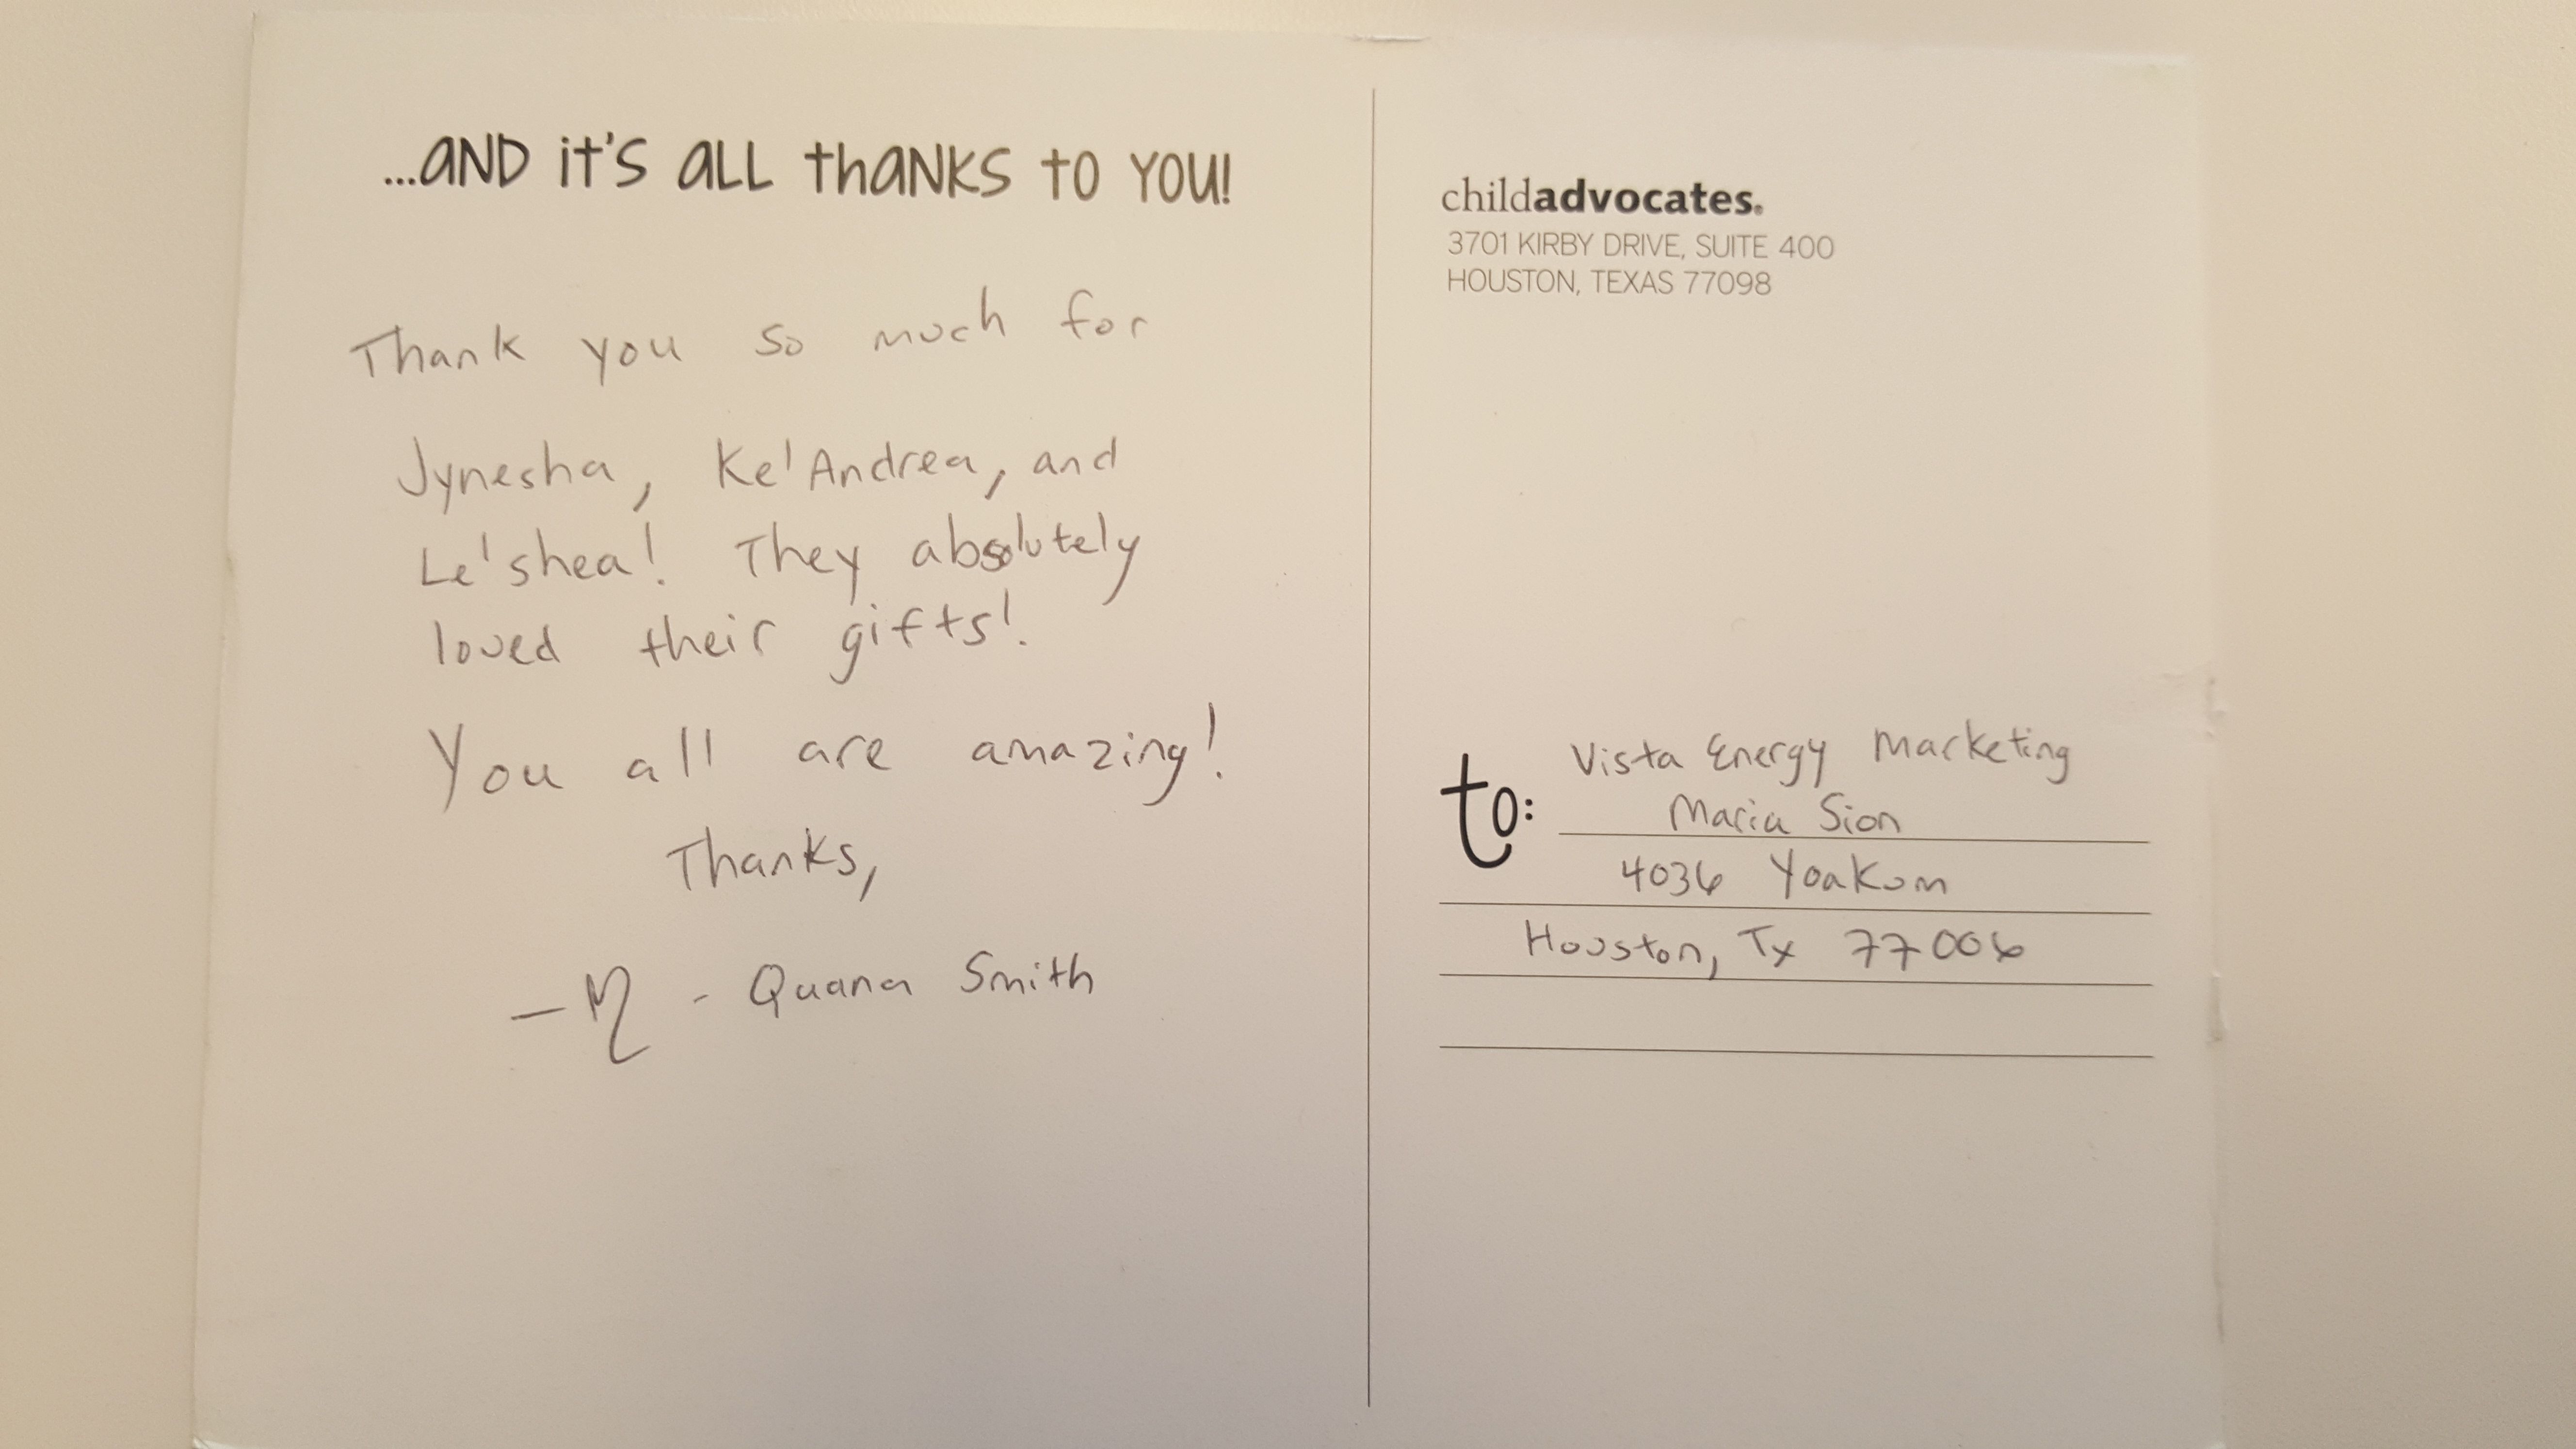 ...AND it's ALL thANKS tO YOU!
Thank you so much for
Jynesha, Ke'Andrea, and
Le'shea! They absolutely
loved their gifts!
You all are amazing!
Thanks,
- Quana Smith
childadvocates.
3701 KIRBY DRIVE, SUITE 400
HOUSTON, TEXAS 77098
Vista Energy Marketing
to: Maria Sion
4036 Yoakum
Houston, Tx 77006